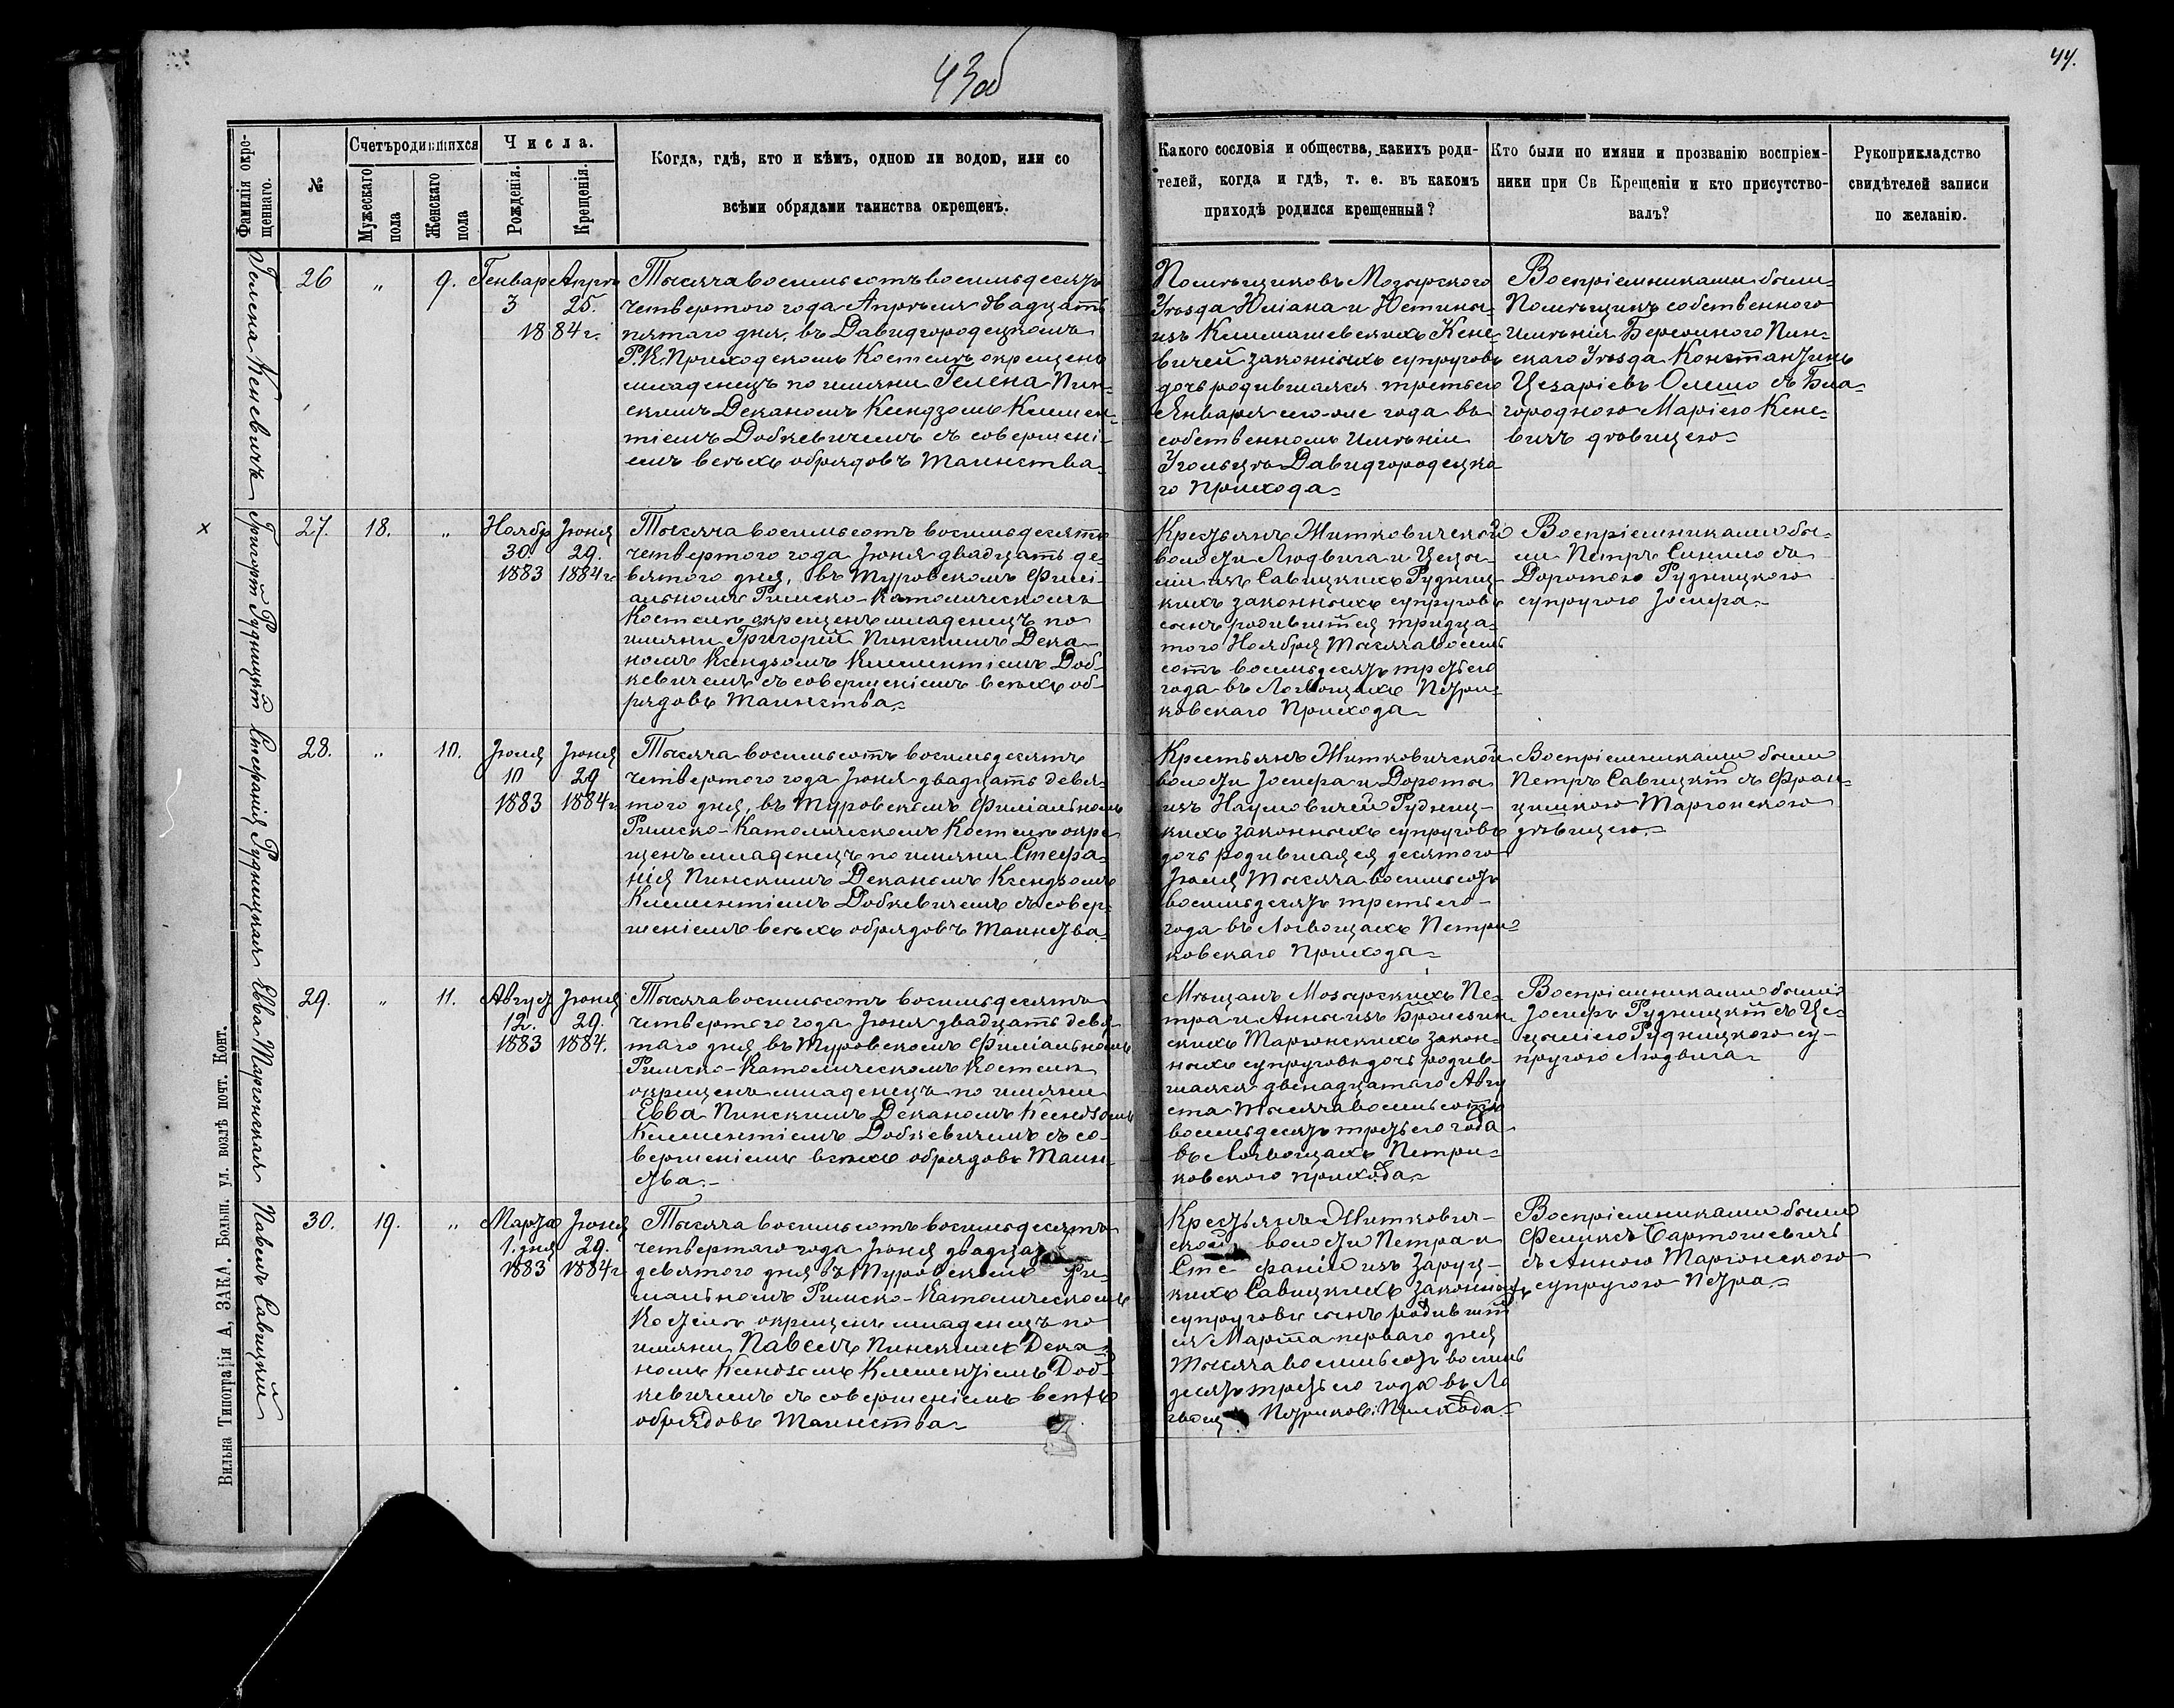 43об
44.
Фамилія окре-
щеннаго.
№
Счетъ родившихся
Мужескаго
пола
Женскаго
пола
Числа.
Рожденія.
Крещенія.
Когда, гдѣ, кто и кѣмъ, одною ли водою, или со
всѣми обрядами таинства окрещенъ.
Какого сословія и общества, какихъ роди-
телей, когда и гдѣ, т. е. въ какомъ
приходѣ родился крещенный?
Кто были по имяни и прозванію воспріем-
ники при Св Крещеніи и кто присутство-
валъ?
Рукоприкладство
свидѣтелей записи
по желанію.
Гелена Кеневичъ
26
"
9.
Генвар
3
Апрѣл
25.
1884 г.
Тысяча восемьсотъ восемьдесятъ
четвертого года Апрѣля двадцать
пятаго дня, въ Давидгородецкомъ
Р. К. Приходскомъ Костелѣ окрещенъ
младенецъ по имяни Гелена Пин-
скимъ Деканомъ Ксендзомъ Климен-
тіемъ Добкевичемъ съ совершені-
емъ всѣхъ обрядовъ таинства
Помѣщиковъ Мозырского
Уѣзда Юліана и Юстины
изъ Климашевскихъ Кене-
вичей законныхъ супруговъ
дочь родившаяся третьего
Января сего-же года въ
собственномъ имѣніи
Угольцѣ Давидгородецка
го Прихода
Воспріемниками были
Помѣщикъ собственного
имѣнія Бережного Пин-
скаго Уѣзда Константинъ
Цезаріевъ Олешо съ Бла-
городною Маріею Кене-
вичъ дѣвицею
×
Григорій Рудницкій
27.
18.
"
Ноябр
30.
1883
Іюня
29.
1884 г.
Тысяча восемьсотъ восемьдесятъ
четвертого года Іюня двадцать де-
вятого дня, въ Туровскомъ Филі-
альномъ Римско-Католическомъ
Костелѣ окрещенъ младенецъ по
имяни Григорій Пинскимъ Дека-
номъ Ксендзомъ Климентіемъ Доб-
кевичемъ съ совершеніемъ всѣхъ об-
рядовъ Таинства
Крестьянъ Житковичской
волости Людвига и Цецы-
ліи изъ Савицкихъ Рудниц-
кихъ законныхъ супруговъ
сынъ родившійся тридца-
того Ноября Тысяча восемь
сотъ восемьдесятъ третьего
года въ Логвощахъ Петри-
ковскаго Прихода
Воспріемниками бы-
ли Петръ Синило съ
Доротою Рудницкого
супругою Іосифа
Стефанія Рудницкая
28.
"
10.
Іюля
10
1883
Іюня
29
1884 г.
Тысяча восемьсотъ восемьдесятъ
четвертого года Іюня двадцать девя-
того дня, въ Туровскомъ Филіальномъ
Римско-Католическомъ Костелѣ окре
щенъ младенецъ по имяни Стефа-
нія Пинскимъ Деканомъ Ксендзомъ
Климентіемъ Добкевичемъ съ совер-
шеніемъ всѣхъ обрядовъ Таинства
Крестьянъ Житковичской
волости Іосифа и Дороты
изъ Наумовичей Рудниц-
кихъ законныхъ супруговъ
дочь родившаяся десятого
Іюля Тысяча восемьсотъ
восемьдесятъ третьего
года въ Логвощахъ Петри-
ковскаго Прихода
Воспріемниками были
Петръ Савицкій съ Фран-
цишкою Маргонскою
дѣвицею
Евва Маргонская
29.
"
11.
Август
12.
1883
Іюня
29.
1884.
Тысяча восемьсотъ восемьдесятъ
четвертого года Іюня двадцать девя-
таго дня въ Туровскомъ Филіальномъ
Римско-Католическомъ Костелѣ
окрещенъ младенецъ по имяни
Евва Пинскимъ Деканомъ Ксендзомъ
Климентіемъ Добкевичемъ съ со-
вершеніемъ всѣхъ обрядовъ Таин-
ства
Мѣщанъ Мозырскихъ Пе-
тра и Анны изъ
скихъ Маргонскихъ закон-
ныхъ супруговъ дочь родив-
шаяся двенадцатаго Авгу
ста Тысяча восемьсотъ
восемьдесятъ третьего года
въ Логвощахъ Петри-
ковского прихода
Воспріемниками были
Іосифъ Рудницкій съ Це-
цыліею Рудницкого су-
пругою Людвига
Павелъ Савицкій
30.
19.
"
Марта
1. дня
1883
Іюня
29.
1884 г
Тысяча восемьсотъ восемьдесятъ
четвертаго года Іюня двадцать
девятого дня въ Туровскомъ Фи-
ліальномъ Римско-Католическомъ
Костелѣ окрещенъ младенецъ по
имяни Павелъ Пинскимъ Дека-
номъ Ксендзомъ Климентіемъ Доб-
кевичемъ съ совершеніемъ всѣхъ
обрядовъ Таинства
Крестьянъ Житкович-
ской волости Петра и
Стефаніи изъ Заруц-
кихъ Савицкихъ законныхъ
супруговъ сынъ родившій
ся Марта перваго дня
Тысяча восемьсотъ восемь
десятъ третьего года въ Ло
гвощ Петриков. Прихода
Воспріемниками были
Феликсъ Бартошевичъ
съ Анною Маргонского
супругою Петра
Вильна Типографія А, ЗАКА. Больш. ул. возлѣ почт. Конт.